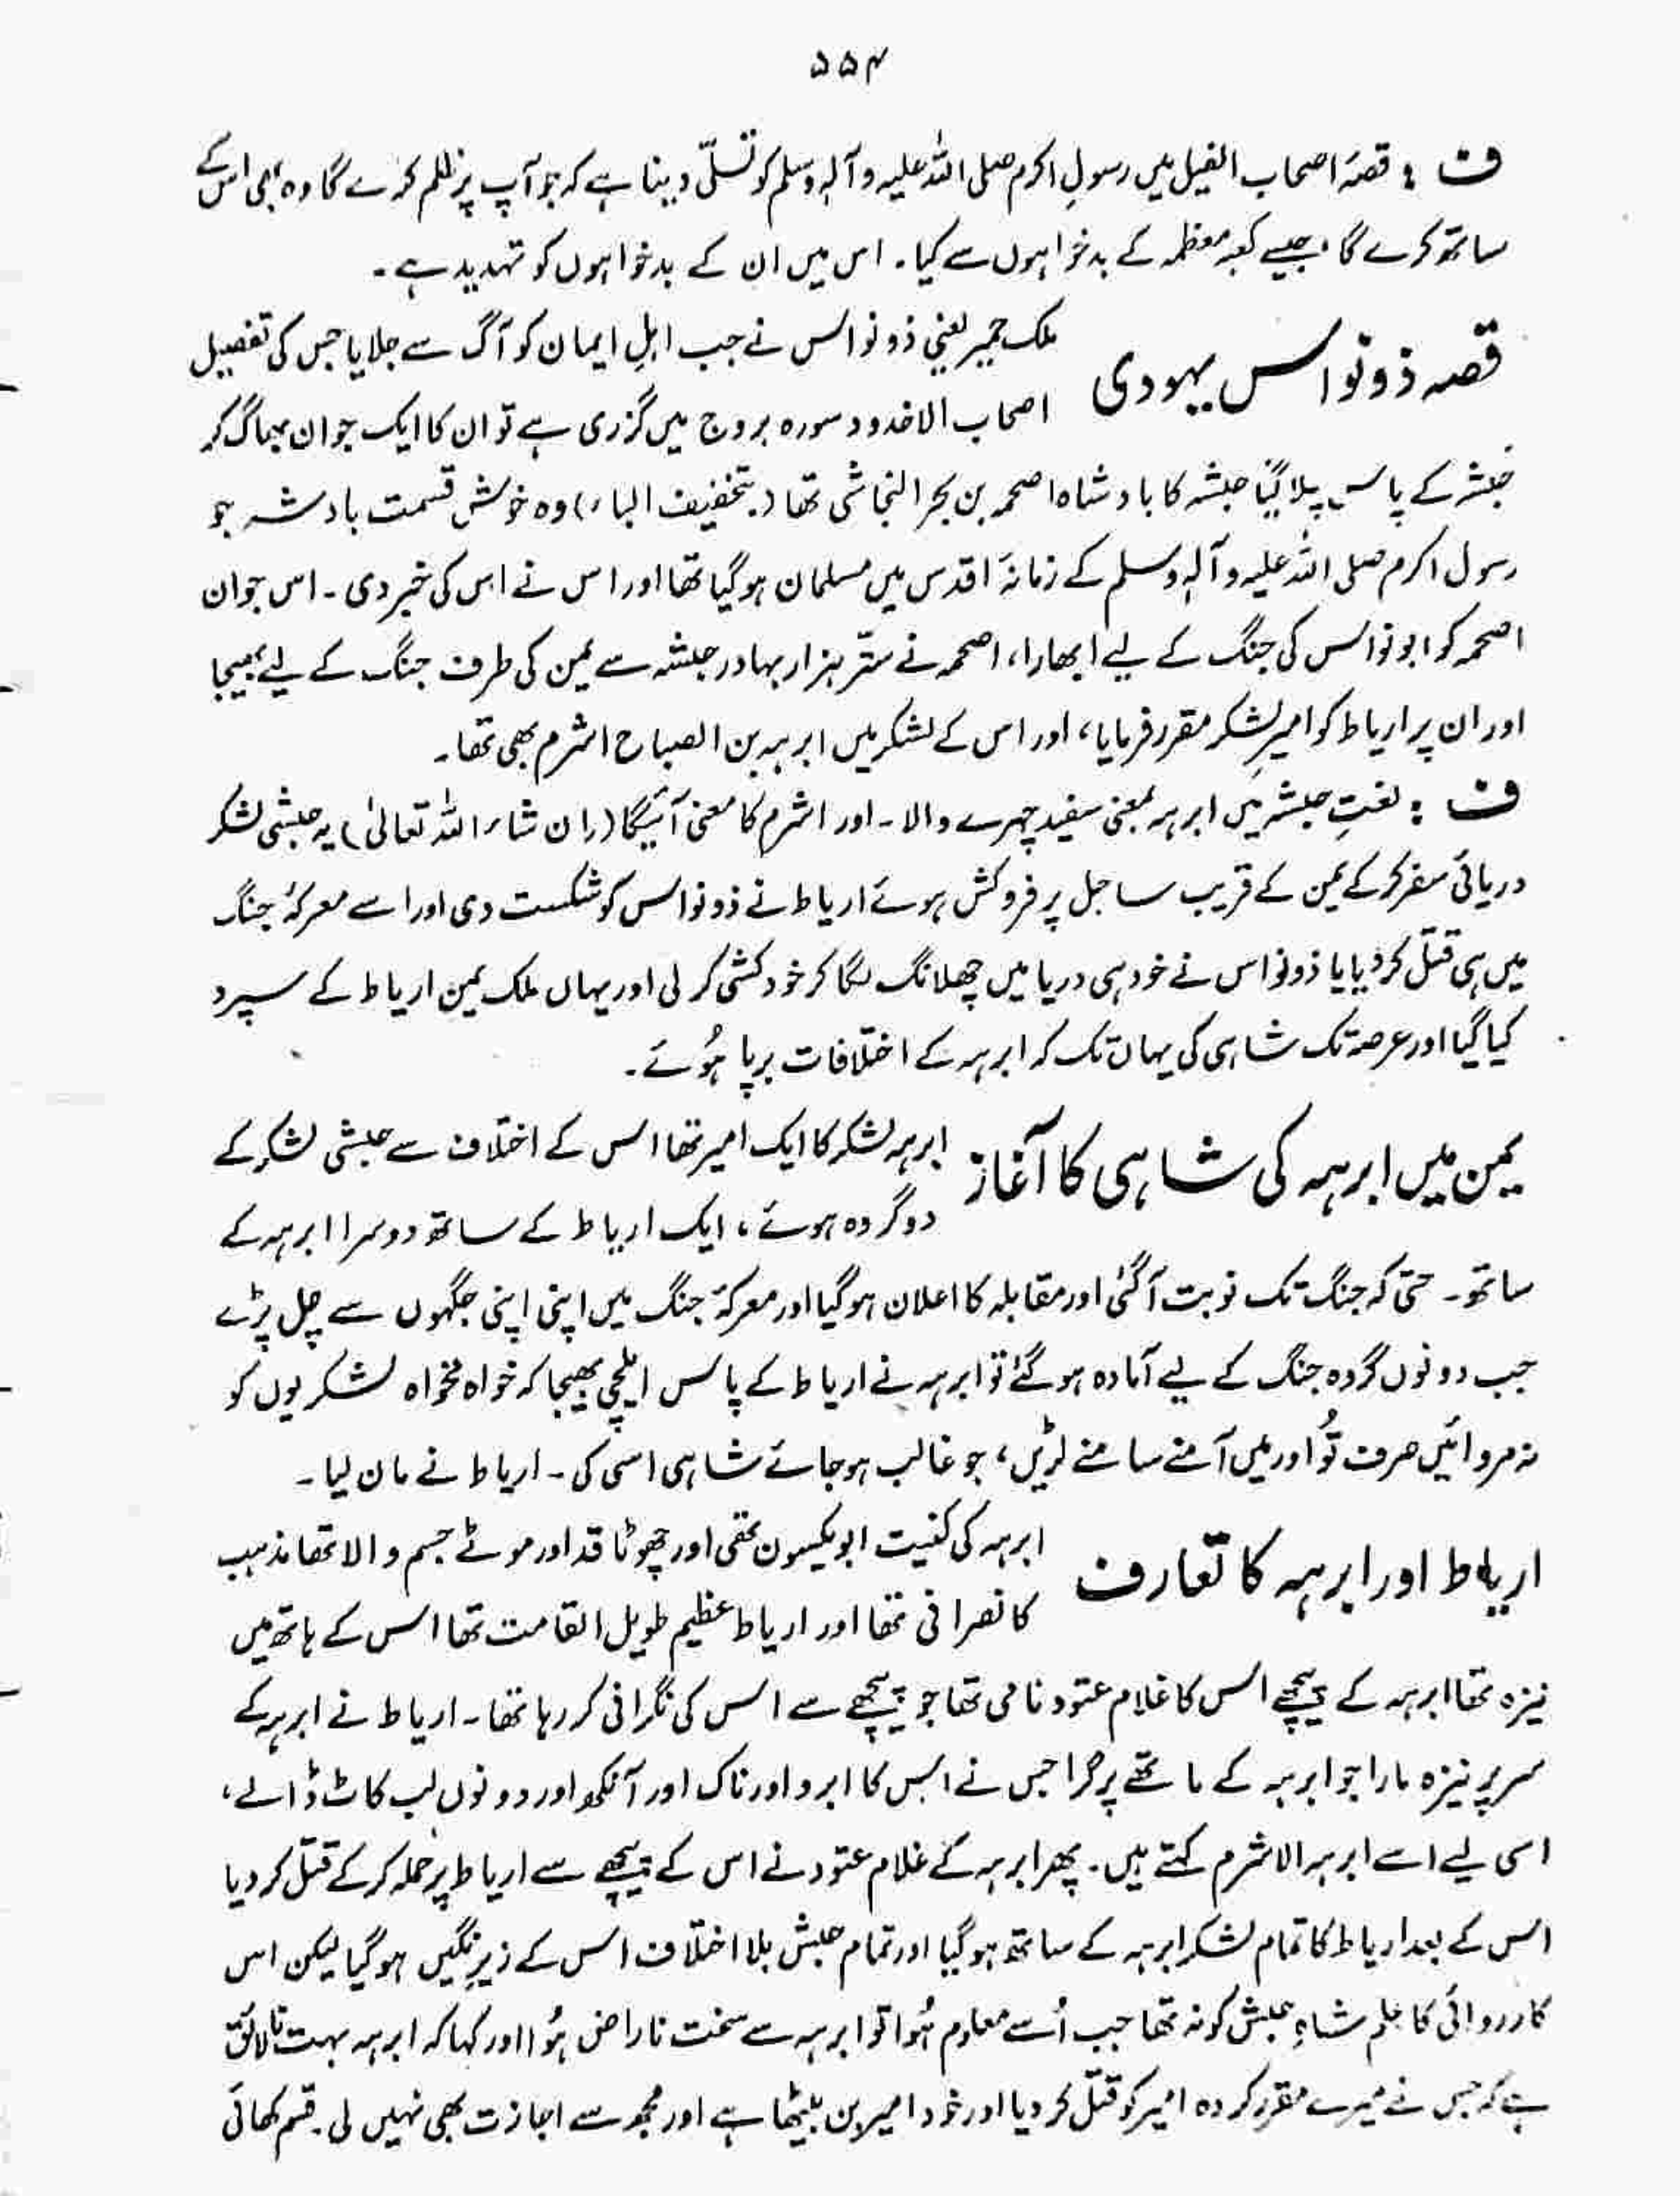 ۵۵۴
ف : قصۂ اصحاب الفیل میں رسولِ اکرم صلی اللہ علیہ وآلہٖ وسلم کو تسلّی دینا ہے کہ جو آپ پر ظلم کرے گا وہ بھی اس کے
ساتھ کرے گا جیسے کعبہ معظمہ کے بدخواہوں سے کیا۔ اس میں ان کے بدخواہوں کو تہدید ہے۔
قصہ ذونواس یہودی
ملک حمیر یعنی ذونواس نے جب اہلِ ایمان کو آگ سے جلایا جس کی تفصیل
اصحاب الاخدود سورہ بروج میں گزری ہے تو ان کا ایک جوان بھاگ کر
حبشہ کے پاس چلا گیا حبشہ کا بادشاہ اصحمہ بن بحر النجاشی تھا (بتخفیف الیاء) وہ خوش قسمت بادشہ جو
رسول اکرم صلی اللہ علیہ وآلہٖ وسلم کے زمانۂ اقدس میں مسلمان ہوگیا تھا اور اس نے اس کی خبر دی۔ اس جوان
اصحمہ کو ابونواس کی جنگ کے لیے ابھارا، اصحمہ نے ستّر ہزار بہادر حبشہ سے یمن کی طرف جنگ کے لیے بھیجا
اور ان پر ارباط کو امیرِ لشکر مقرر فرمایا، اور اس کے لشکر میں ابرہہ بن الصباح اشرم بھی تھا۔
ف : لغتِ حبشہ میں ابرہہ بمعنی سفید چہرے والا۔ اور اشرم کا معنی آئیگا (ان شاء اللہ تعالیٰ) یہ حبشی لشکر
دریائی سفر کرکے یمن کے قریب ساحل پر فروکش ہوئے ارباط نے ذونواس کو شکست دی اور اسے معرکۂ جنگ
میں ہی قتل کردیا یا ذونواس نے خود ہی دریا میں چھلانگ لگا کر خودکشی کرلی اور یہاں ملک یمن ارباط کے سپرد
کیا گیا اور عرصہ تک شاہی کی یہاں تک کہ ابرہہ کے اختلافات برپا ہُوئے۔
یمن میں ابرہہ کی شاہی کا آغاز
ابرہہ لشکر کا ایک امیر تھا اس کے اختلاف سے حبشی لشکر کے
دو گروہ ہوئے، ایک ارباط کے ساتھ دوسرا ابرہہ کے
ساتھ۔ حتی کہ جنگ تک نوبت آگئی اور مقابلہ کا اعلان ہوگیا اور معرکۂ جنگ میں اپنی اپنی جگہوں سے چل پڑے
جب دونوں گروہ جنگ کے لیے آمادہ ہوگئے تو ابرہہ نے ارباط کے پاس ایلچی بھیجا کہ خواہ مخواہ لشکریوں کو
نہ مروائیں صرف تُو اور میں آمنے سامنے لڑیں، جو غالب ہوجائے شاہی اسی کی۔ ارباط نے مان لیا۔
ارباط اور ابرہہ کا تعارف
ابرہہ کی کنیت ابویکسون تھی اور چھوٹا قد اور موٹے جسم والا تھا مذہب
کا نصرانی تھا اور ارباط عظیم طویل القامت تھا اس کے ہاتھ میں
نیزہ تھا ابرہہ کے پیچھے اس کا غلام عتود نامی تھا جو پیچھے سے اس کی نگرانی کر رہا تھا۔ ارباط نے ابرہہ کے
سر پر نیزہ مارا جو ابرہہ کے ماتھے پر گرا جس نے اس کا ابرو اور ناک اور آنکھ اور دونوں لب کاٹ ڈالے،
اسی لیے اسے ابرہہ الاشرم کہتے ہیں۔ پھر ابرہہ کے غلام عتود نے اس کے پیچھے سے ارباط پر حملہ کرکے قتل کردیا
اس کے بعد ارباط کا تمام لشکر ابرہہ کے ساتھ ہوگیا اور تمام حبش بلا اختلاف اس کے زیرِنگیں ہوگیا لیکن اس
کارروائی کا علم شاہِ حبش کو نہ تھا جب اُسے معلوم ہُوا تو ابرہہ سے سخت ناراض ہُوا اور کہا کہ ابرہہ بہت نالائق
ہے کہ جس نے میرے مقرر کردہ امیر کو قتل کردیا اور خود امیر بن بیٹھا ہے اور مجھ سے اجازت بھی نہیں لی۔ قسم کھائی